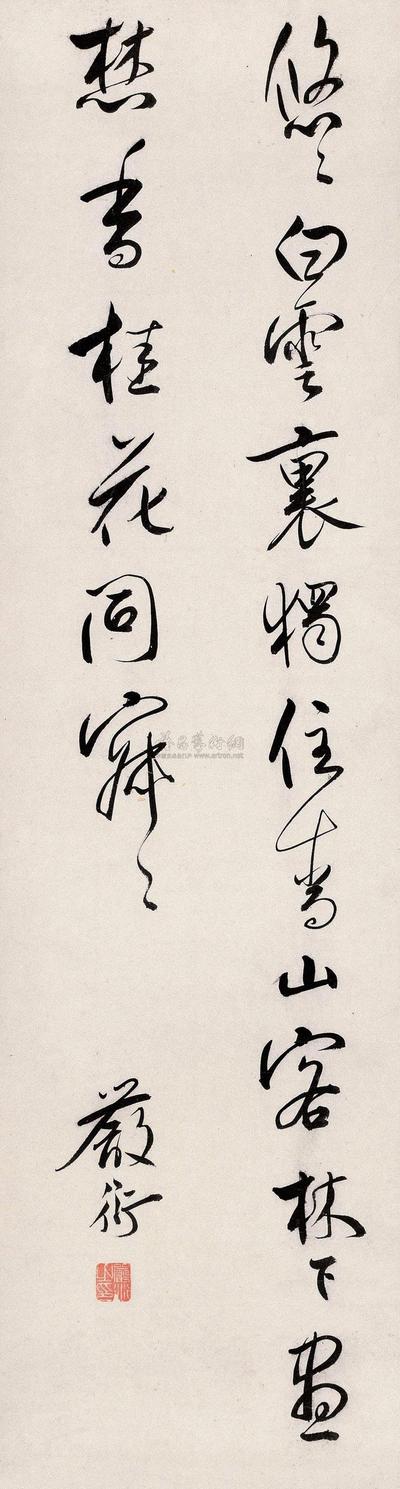 悠々白雲裏獨住青山客林下晝
焚香桂花同寂々
嚴衍
雅昌藝術網
www.artron.net